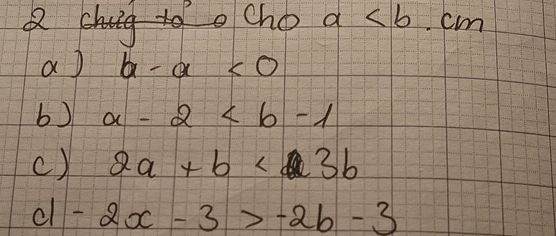 2 chứng tỏ Cho a < b . cm
a) b - a < 0
b) a - 2 < b - 1
c) 2a + b < 3b
d - 2x - 3 > -2b - 3